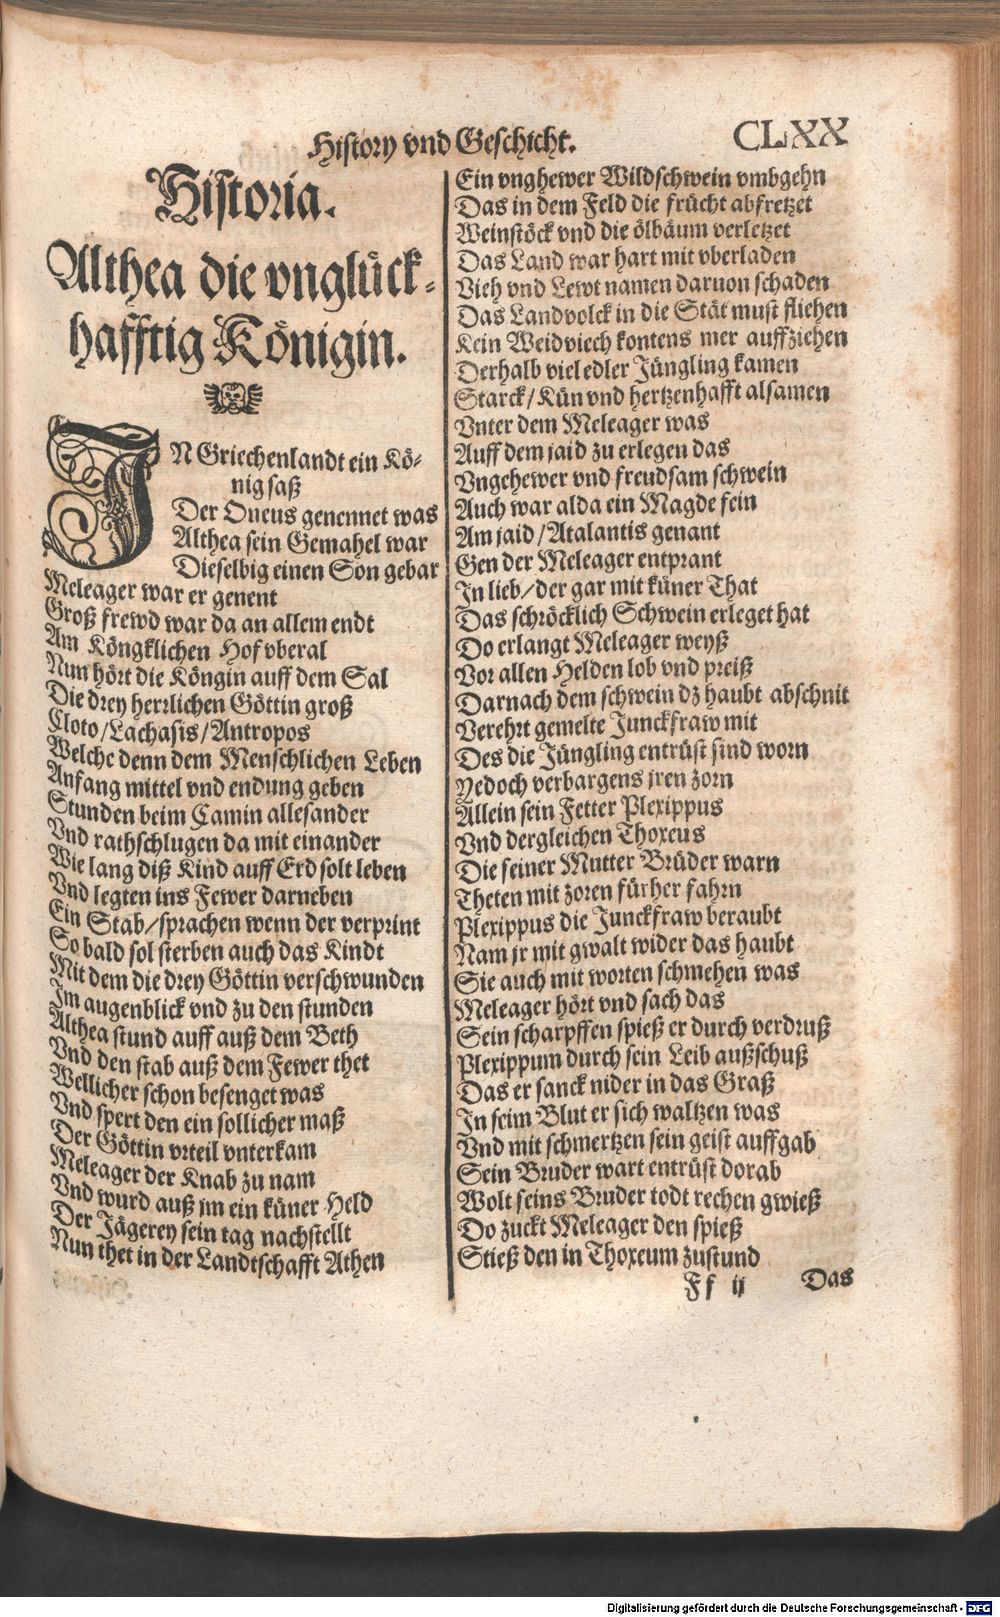 History vnd Geschicht.
CLXX
Historia.
Althea die vnglück-
hafftig Königin.
IN Griechenlandt ein Kö-
nig saß
Der Oneus genennet was
Althea sein Gemahel war
Dieselbig einen Son gebar
Meleager war er genent
Groß frewd war da an allem endt
Am Köngklichen Hof vberal
Nun hört die Köngin auff dem Sal
Die drey herrlichen Göttin groß
Cloto/Lachasis/Antropos
Welche denn dem Menschlichen Leben
Anfang mittel vnd endung geben
Stunden beim Camin allesander
Vnd rathschlugen da mit einander
Wie lang diß Kind auff Erd solt leben
Vnd legten ins Fewer darneben
Ein Stab/sprachen wenn der verprint
So bald sol sterben auch das Kindt
Mit dem die drey Göttin verschwunden
Im augenblick vnd zu den stunden
Althea stund auff auß dem Beth
Vnd den stab auß dem Fewer thet
Wellicher schon besenget was
Vnd spert den ein sollicher maß
Der Göttin vrteil vnterkam
Meleager der Knab zu nam
Vnd wurd auß jm ein küner Held
Der Jägerey sein tag nachstellt
Nun thet in der Landtschafft Athen
Ein vnghewer Wildschwein vmbgehn
Das in dem Feld die frücht abfretzet
Weinstöck vnd die ölbäum verletzet
Das Land war hart mit vberladen
Vieh vnd Lewt namen daruon schaden
Das Landvolck in die Stät must fliehen
Kein Weidviech kontens mer auffziehen
Derhalb viel edler Jüngling kamen
Starck/Kün vnd hertzenhafft alsamen
Vnter dem Meleager was
Auff dem jaid zu erlegen das
Vngehewer vnd freudsam schwein
Auch war alda ein Magde fein
Am jaid/Atalantis genant
Gen der Meleager entprant
In lieb/der gar mit küner That
Das schröcklich Schwein erleget hat
Do erlangt Meleager weyß
Vor allen Helden lob vnd preiß
Darnach dem schwein dz haubt abschnit
Verehrt gemelte Junckfraw mit
Des die Jüngling entrüst sind worn
Yedoch verbargens jren zorn
Allein sein Fetter Plexippus
Vnd dergleichen Thoxeus
Die seiner Mutter Brüder warn
Theten mit zoren fürher fahrn
Plexippus die Junckfraw beraubt
Nam jr mit gwalt wider das haubt
Sie auch mit worten schmehen was
Meleager hört vnd sach das
Sein scharpffen spieß er durch verdruß
Plexippum durch sein Leib außschuß
Das er sanck nider in das Graß
In seim Blut er sich waltzen was
Vnd mit schmertzen sein geist auffgab
Sein Bruder wart entrüst dorab
Wolt seins Bruder todt rechen gwieß
Do zuckt Meleager den spieß
Stieß den in Thoxeum zustund
Ff ij
Das
Digitalisierung gefördert durch die Deutsche Forschungsgemeinschaft - DFG